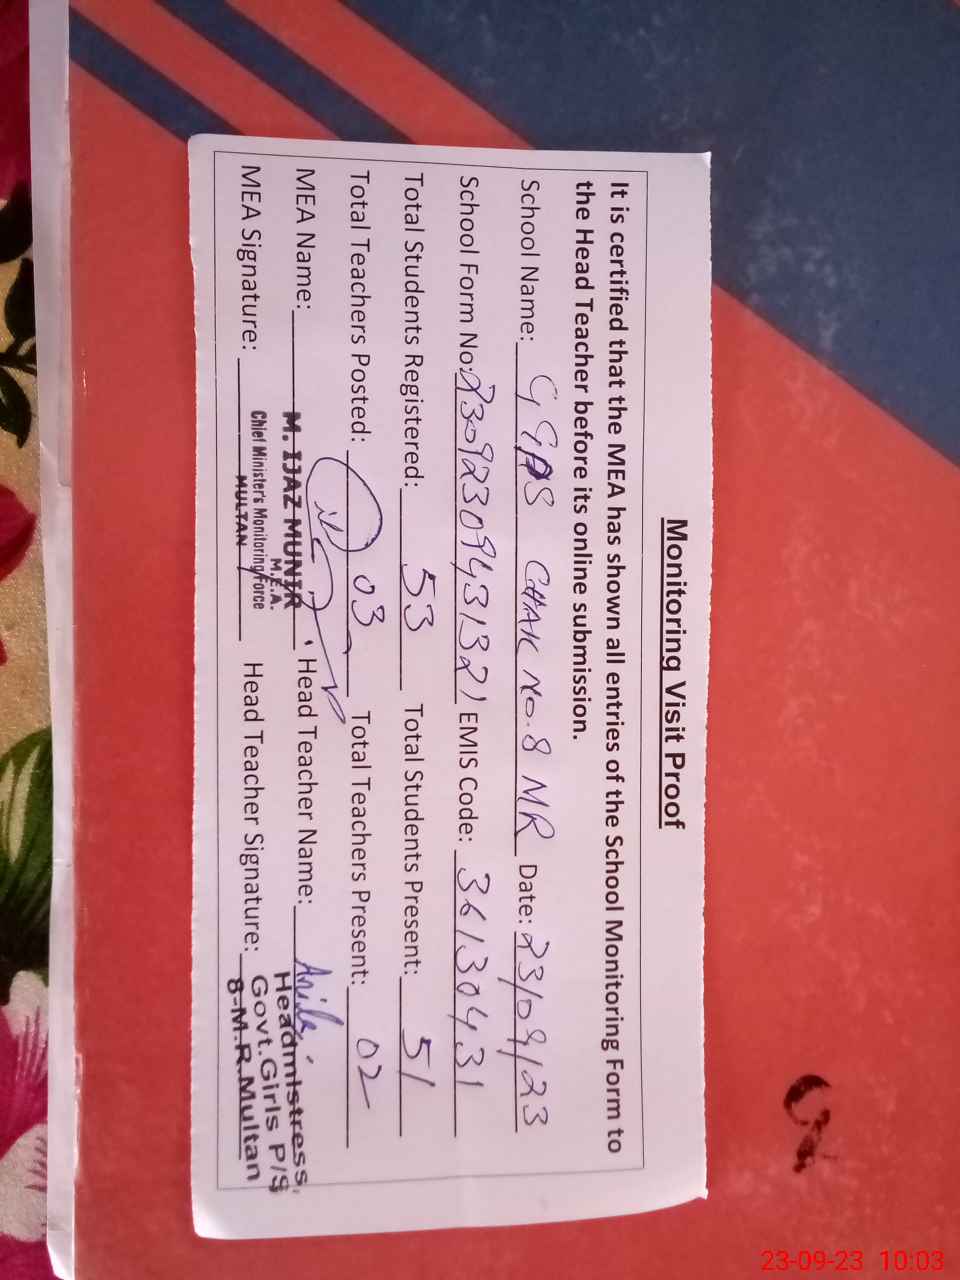 Monitoring Visit Proof
It is certified that the MEA has shown all entries of the School Monitoring Form to
the Head Teacher before its online submission.
School Name: GGPS CHAK No. 8 MR Date: 23/09/23
School Form No: 2309230943132) EMIS Code: 36130431
Total Students Registered: 53 Total Students Present: 51
Total Teachers Posted: 03 Total Teachers Present: 02
MEA Name: M. IJAZ MUNIR Head Teacher Name: Anila
M.E.A.
Chief Minister's Monitoring Force
MULTAN
MEA Signature: Head Teacher Signature:
Headmistress,
Govt.Girls P/S
8-M.R.Multan
23-09-23 10:03